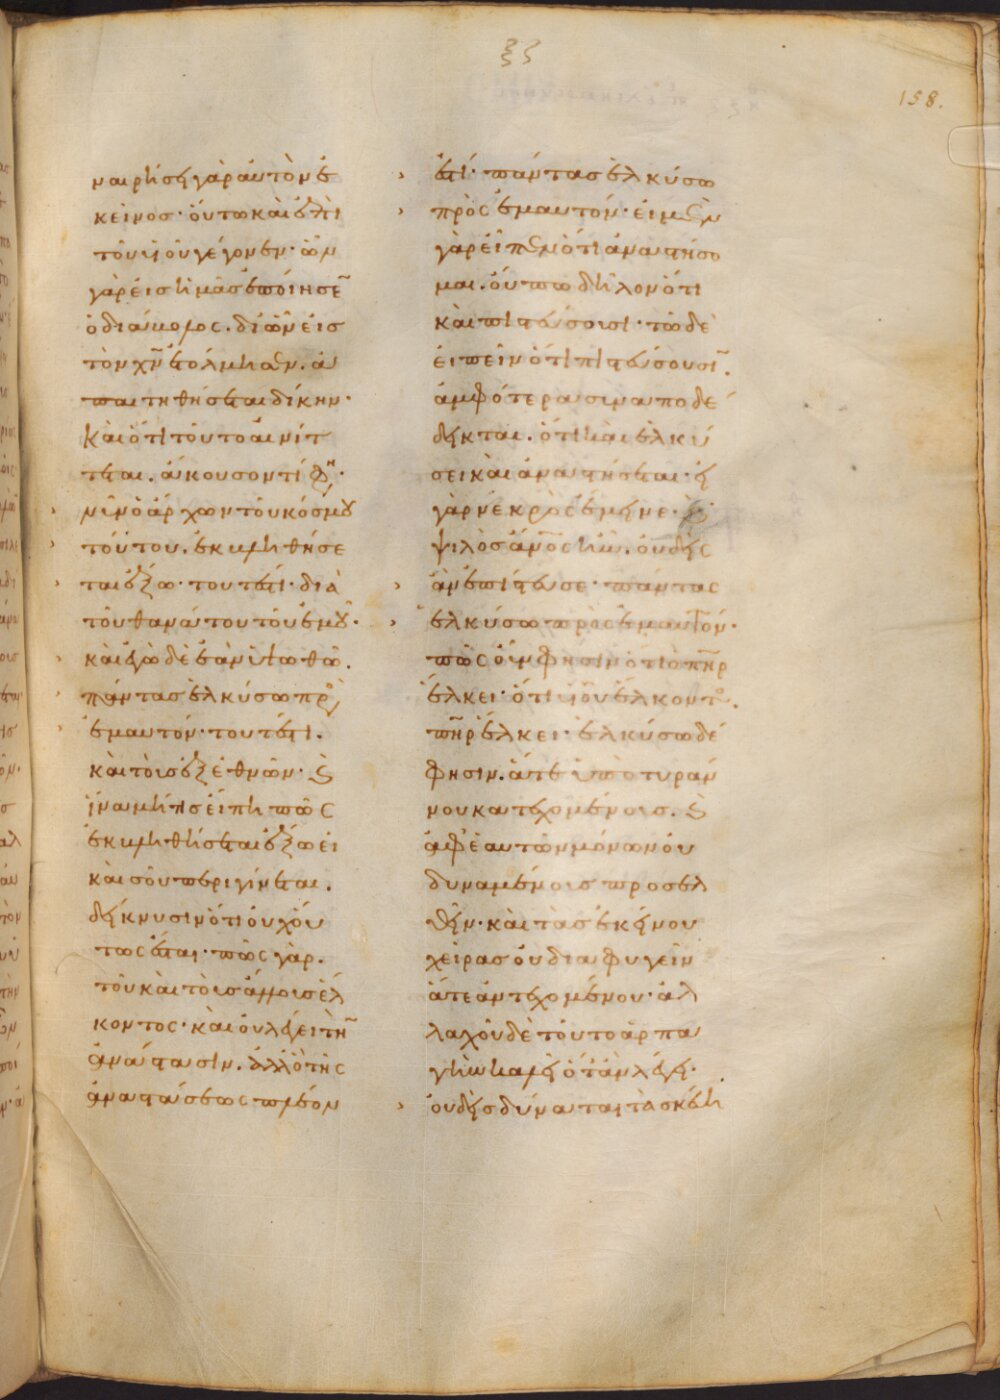 ξζ
158.
ναιρήσει γὰρ αὐτὸν ἐ
κεῖνος· οὕτω καὶ ἐπὶ
τοῦ υἱοῦ γέγονεν· ὧν
γὰρ εἰς ἡμᾶς ἐποίησε
ὁ διάβολος. δι' ὧν εἰς
τὸν χν ἐτόλμησεν. ἀ
παιτηθήσεται δίκην·
Καὶ ὅτι τοῦτο αἰνίτ
τεται. ἄκουσον τί φη·
νῦν ὁ ἄρχων τοῦ κόσμου
τούτου. ἐκβληθήσε
ται ἔξω· τουτέστι· διὰ
τοῦ θανάτου τοῦ ἐμοῦ·
κἀγὼ δὲ ἐὰν ὑψωθῶ.
πάντας ἑλκύσω πρὸ
ἐμαυτόν· τουτέστι.
καὶ τοῖς ἐξ ἐθνῶν· καὶ
ἵνα μή τις εἴπῃ πῶς
ἐκβληθήσεται ἔξω εἰ
καὶ σοῦ περιγίνεται.
δείκνυσιν ὅτι οὐχ οὕ
τως ἔσται· πῶς γὰρ.
τοῦ καὶ τοὺς ἄλλους ἕλ
κοντος· καὶ οὐ λέγει τὴν
ἀνάστασιν. ἀλλ' ὃ τῆς
ἀναστάσεως πλέον
ἐστί· πάντας ἑλκύσω
πρὸς ἐμαυτόν· εἰ μὲν
γὰρ εἶπεν ὅτι ἀναστήσο
μαι. οὔπω δῆλον ὅτι
καὶ πιστεύσουσι· τῷ δὲ
εἰπεῖν ὅτι πιστεύσουσι.
ἀμφότερα συναποδέ
δεικται. ὅτι καὶ ἑλκύ
σει καὶ ἀναστήσεται· εἰ
γὰρ νεκρὸς ἔμεινε· καὶ
ψιλὸς ἄνος ἦν. οὐδεὶς
ἂν ἐπίστευσε· πάντας
ἑλκύσω πρὸς ἐμαυτόν·
πῶς οὖν φησὶν ὅτι ὁ πηρ
ἕλκει· ὅτι υἱοῦ ἕλκοντο.
πηρ ἕλκει· ἑλκύσω δέ
φησιν. ἅτε ὑπὸ τυράν
νου κατεχομένους. καὶ
ἀφ' ἑαυτῶν μόνων οὐ
δυναμένοις προσελ
θεῖν· καὶ τὰς ἐκείνου
χεῖρας οὐ διαφυγεῖν
ἅτε ἀντεχομένου· ἀλ
λαχοῦ δὲ τοῦτο ἁρπα
γὴν καλεῖ ὅταν λέγει·
οὐδεὶς δύναται τὰ σκεύη